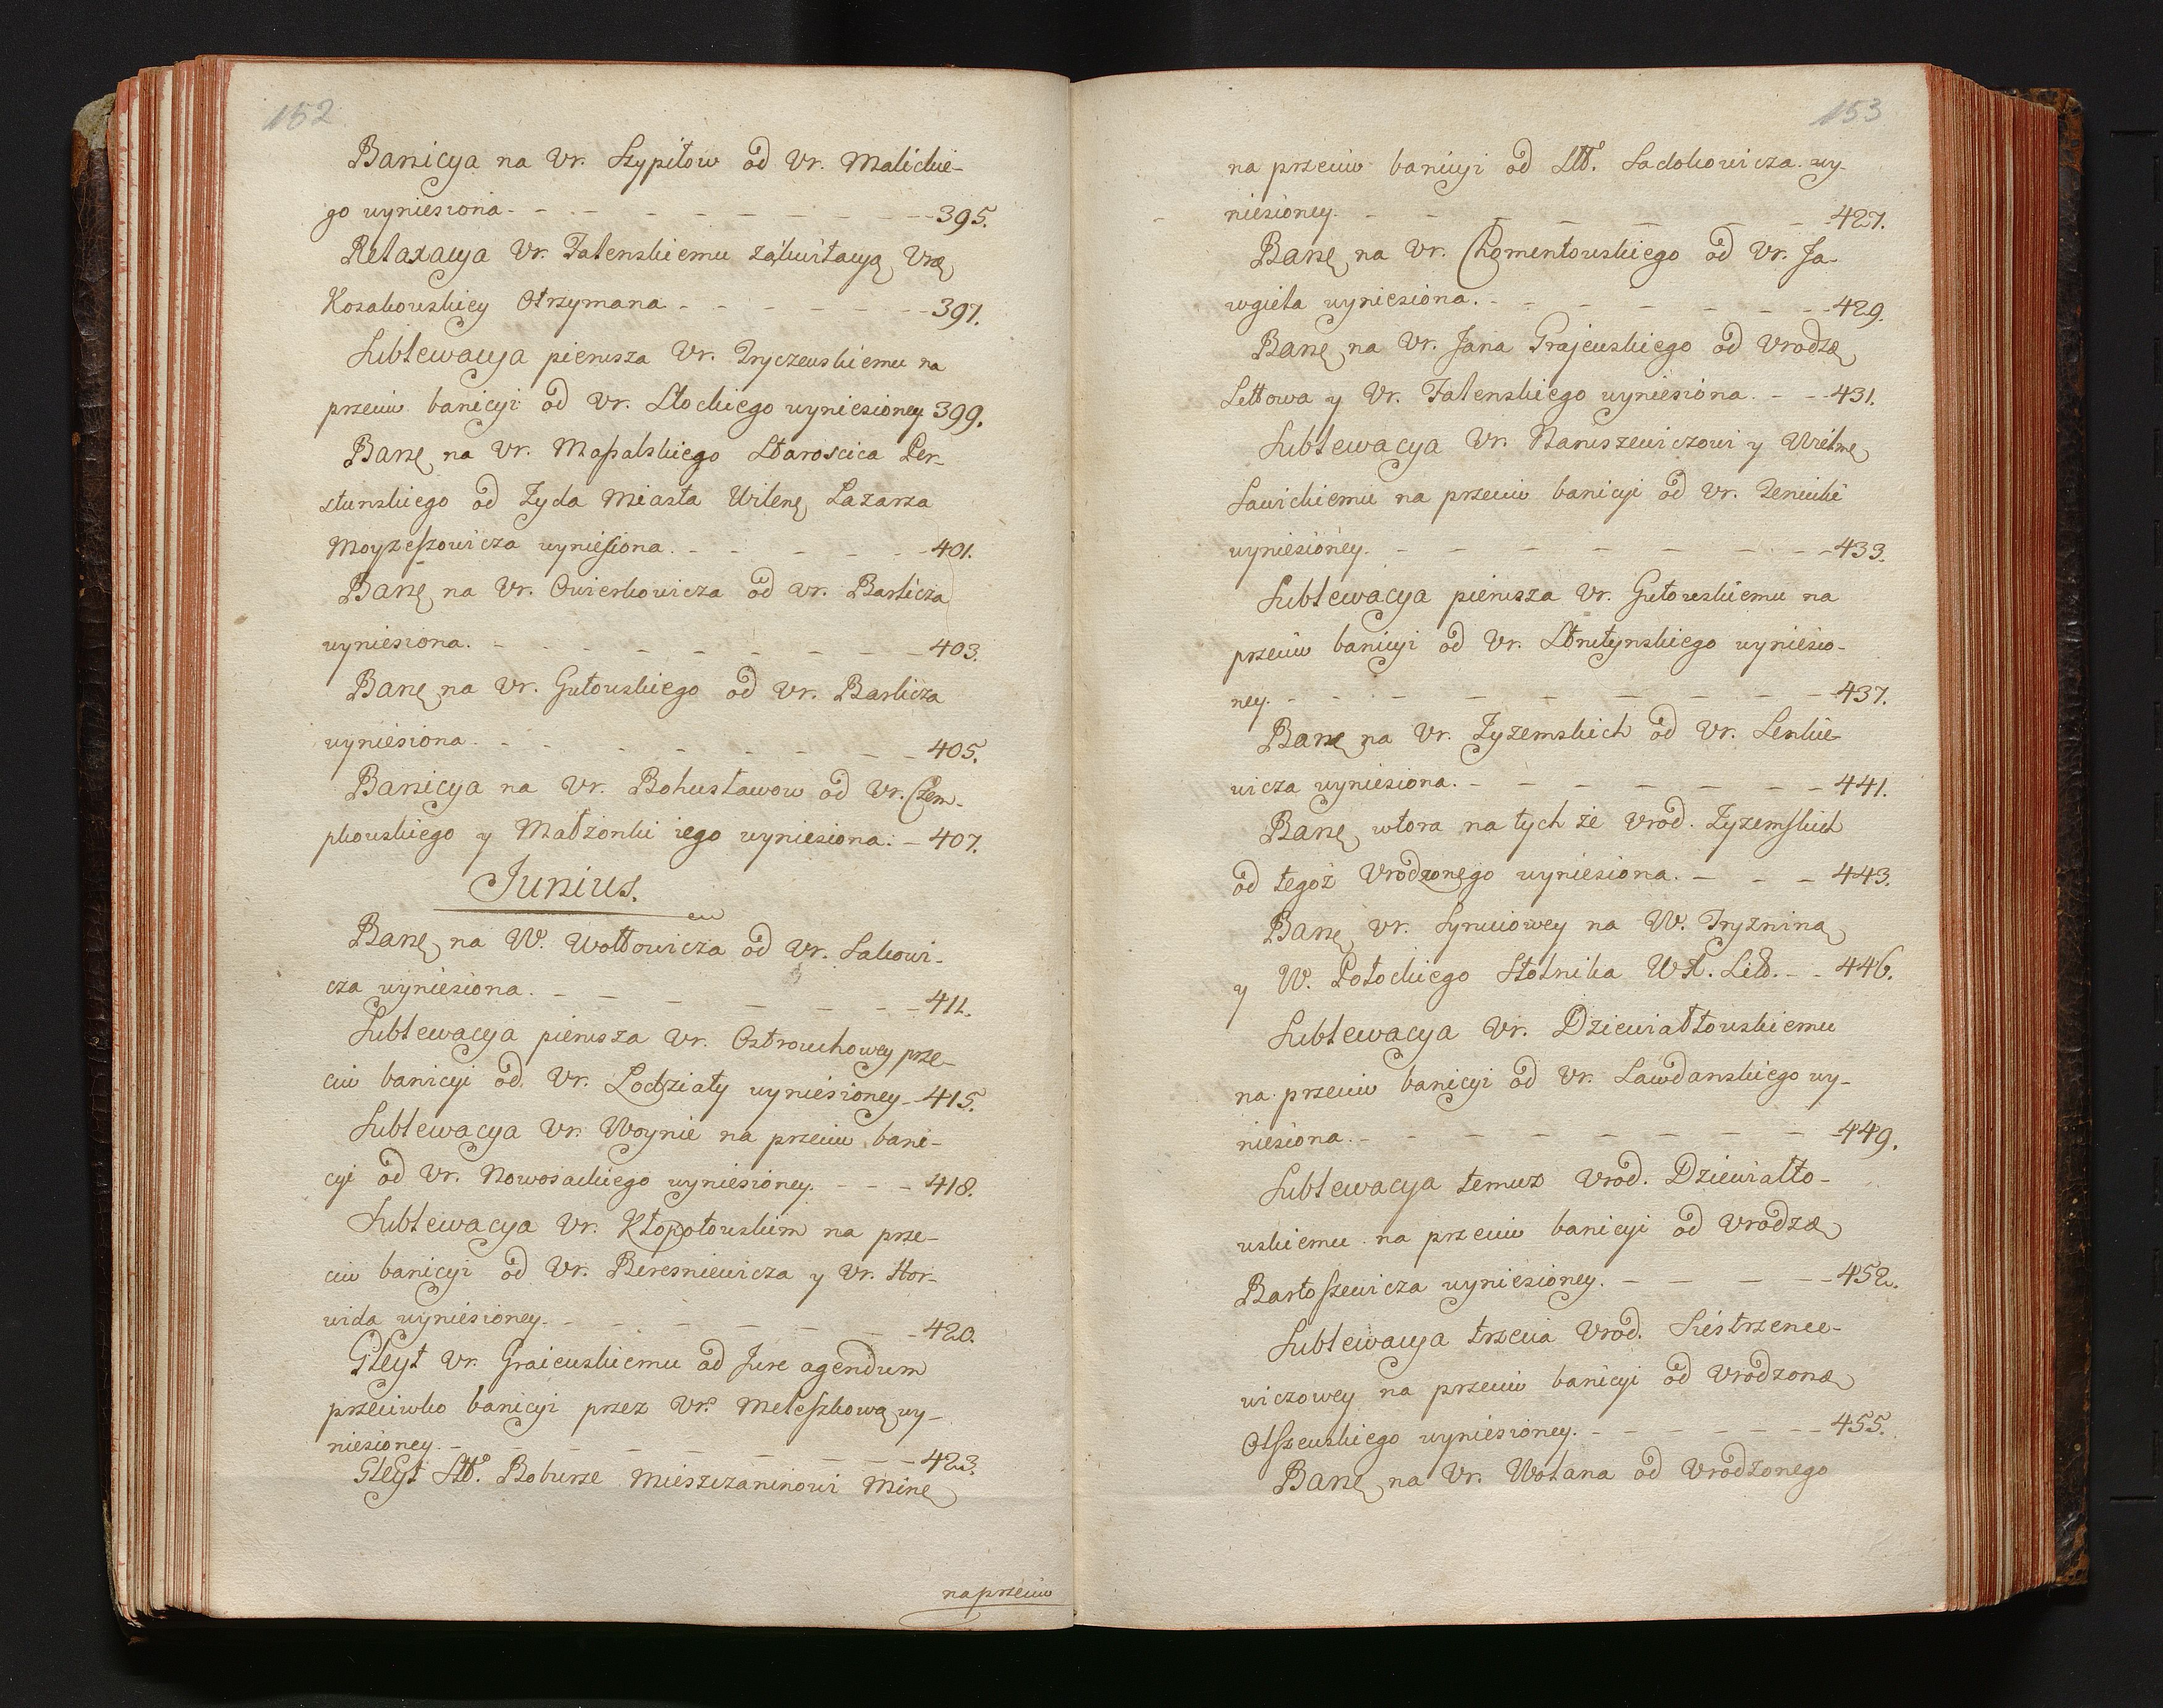 152
Banicya na Vr. Szypiłow od Vr. Malickie-
go wyniesiona - - - - - - - - - 395.
Relaxacya Vr. Talenskiemu zákwitacyą Vrę
Kosakowskiey Otrzymana - - - - - - 397.
Sublewacya pierwsza Vr. Tryczewskiemu na
przeciw banicyi od Vr. Słockiego wyniesioney 399.
Banę na Vr. Massalskiego Staroscica Per-
stunskiego od Żyda Miasta Wilenę Lazarza
Moyzeszowicza wyniesiona. - - - - - - 401.
Banę na Vr. Owierkowicza od Vr. Barlicza
wyniesiona. - - - - - - - - 403.
Banę na Vr. Gutowskiego od Vr. Barlicza
wyniesiona. - - - - - - - - 405.
Banicya na Vr. Bohusławow od Vr. Czem-
pkowskiego y Małzonki iego wyniesiona. - 407.
Junius.
Banę na W. Wołłowicza od Vr. Sakowi-
cza wyniesiona. - - - - - - - 411.
Sublewacya pierwsza Vr. Ostrouchowey prze-
ciw banicyi od Vr. Lodziaty wyniesioney - 415.
Sublewacya Vr. Woynie na przeciw bani-
cyi od Vr. Nowosackiego wyniesioney. - - - 418.
Sublewacya Vr. Kłopotowskim na prze-
ciw banicyi od Vr. Beresniewicza y Vr. Hor-
wida wyniesioney. - - - - - - - 420.
Gleyt Vr. Graiewskiemu ad Jure agendum
przeciwko banicyi przez Vr. Meleszkową wy-
niesioney. - - - - - - - - 423.
Gleyt Sltt. Boburze Mieszczaninowi Minę
naprzeciw
153
na przeciw banicyi od Sltt. Sadokowicza wy-
niesioney. - - - - - - - - 427.
Banę na Vr. Chomentowskiego od Vr. Ja-
wgiela wyniesiona. - - - - - - - 429.
Banę na Vr. Jana Grajewskiego od Vrodzę
Lettowa y Vr. Talenskiego wyniesiona. - - 431.
Sublewacya Vr. Baniszewiczowi y Wielmę
Sawickiemu na przeciw banicyi od Vr. Zenuiki
wyniesioney. - - - - - - - - 433.
Sublewacya pierwsza Vr. Gutowskiemu na
przeciw banicyi od Vr. Strutynskiego wyniesio-
ney. - - - - - - - - - 437.
Banę na Vr. Zyzemskich od Vr. Lenkie-
wicza wyniesiona. - - - - - - - 441.
Banę wtora na tych że Vrod. Zyzemskich
od tegoż Vrodzonego wyniesiona. - - - 443.
Banę Vr. Syruciowey na W. Tryzninę
y W. Potockiego Stolnika WX. Litt. - - 446.
Sublewacya Vr. Dziewiałtowskiemu
na przeciw banicyi od Vr. Lawdanskiego wy-
niesiona. - - - - - - - - 449.
Sublewacya temuz Vrod. Dziewiałto-
wskiemu na przeciw banicyi od Vrodzę
Bartoszewicza wyniesioney. - - - - 452.
Sublewacya trzecia Vrod. Siestrzence-
wiczowey na przeciw banicyi od Vrodzonę
Olszewskiego wyniesioney. - - - - - - 455.
Banę na Vr. Wolana od Vrodzonego